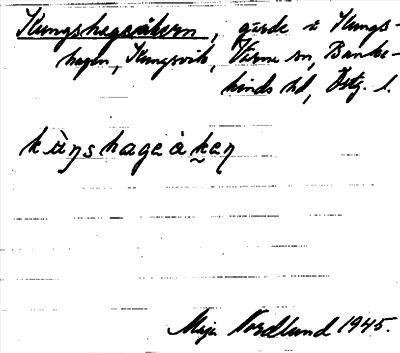 Kungshagsåkern, gärde i Kungs-
hagen, Kungsvik, Värna sn, Banke-
kinds hd, Östg. l.
kùŋshageàkeɳ
Maja Nordlund 1945.